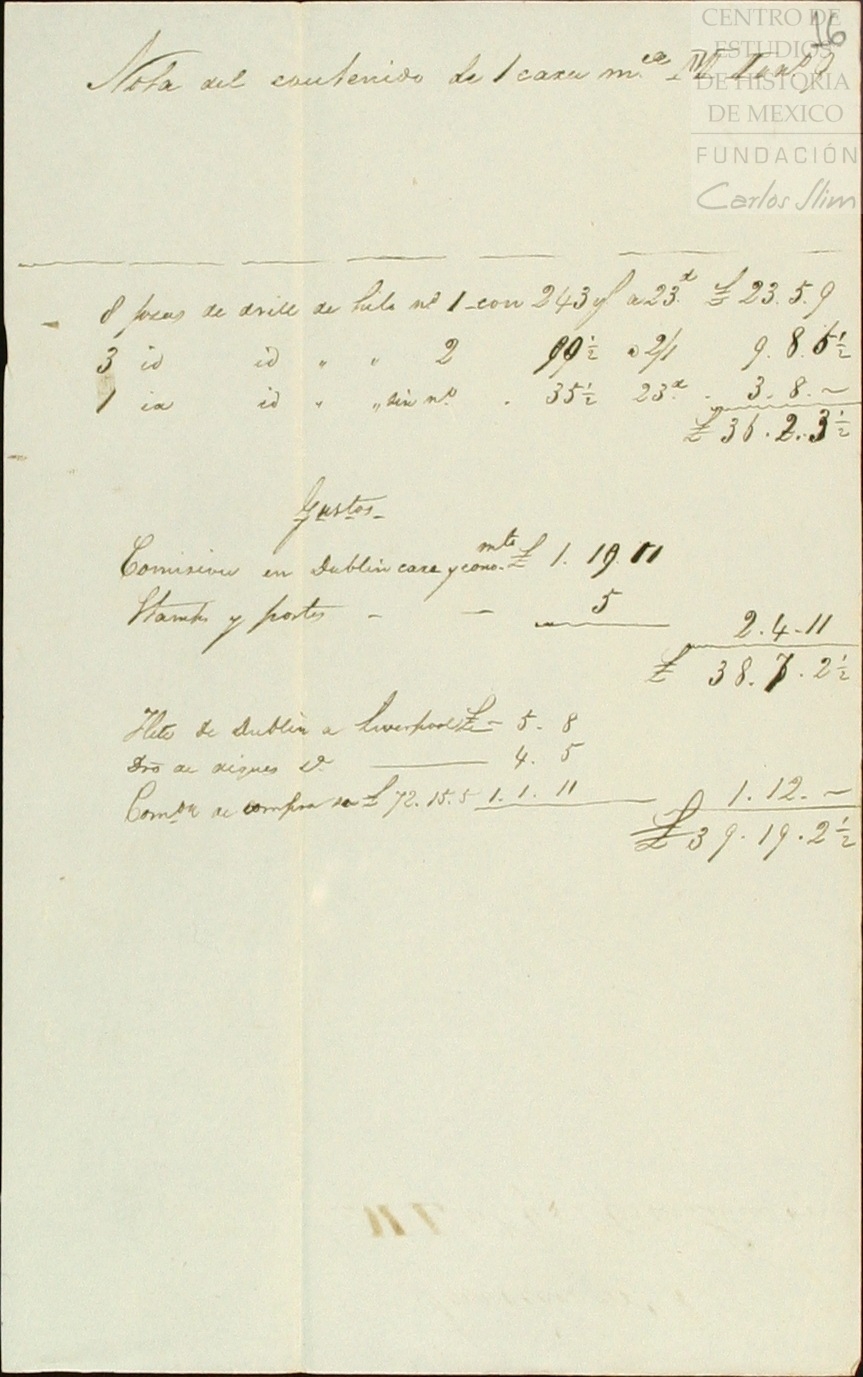 CENTRO DE
ESTUDIOS
DE HISTORIA
DE MEXICO
FUNDACIÓN
Carlos Slim
16
Nota del contenido de 1 caxa m.ca
8 piezas de drill de hilo nº 1 con 243 y a 23.d £ 23. 5. 9
3 id id " " 2 99 ½ a 2/1 9. 8. 6 ½
1 id id " " sin nº . 35 ½ 23.d . 3. 8. ~
£ 36. 2. 3 ½
Gastos
Comision en Dublin caxa y cono.mto £ 1. 19. 11
Stamps y portes - - 5
2. 4. 11
£ 38. 7. 2 ½
Flete de Dublin a Liverpool £ - 5. 8
Dro de diques &a 4. 5
Comon de compra sa £ 72. 15. 5 1. 1. 11
1. 12. ~
£ 39. 19. 2 ½